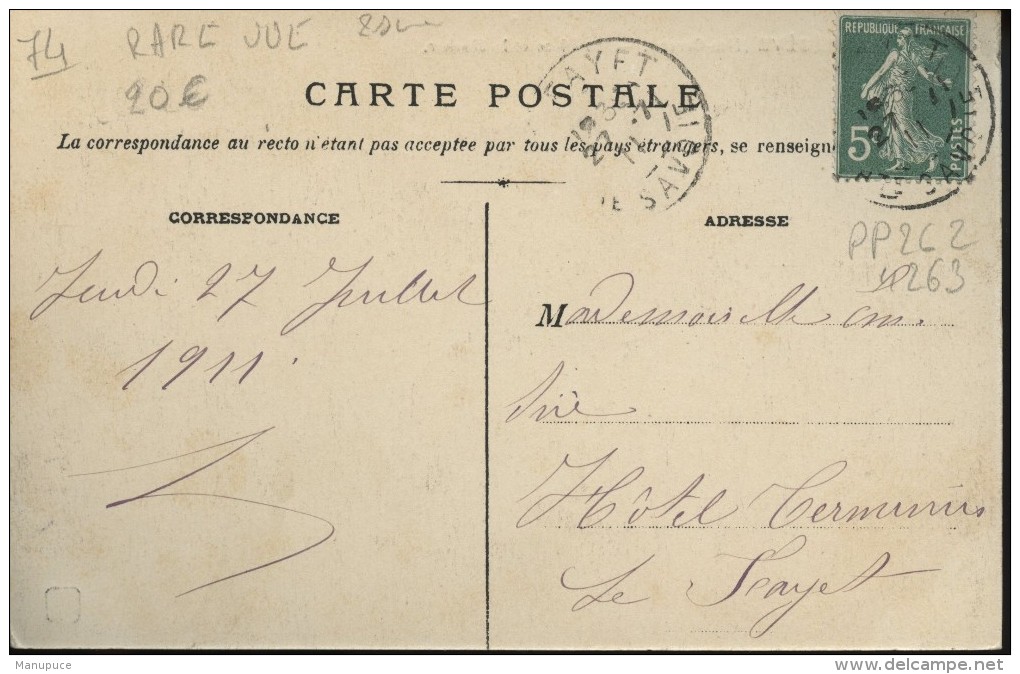 74
RARE VUE
20€
CARTE POSTALE
La correspondance au recto n'étant pas acceptée par tous les pays étrangers, se renseign
FAYET
27
11
SAVOIE
REPUBLIQUE FRANÇAISE
5
POSTES
CORRESPONDANCE
ADRESSE
PP262
263
Jeudi 27 Juillet
1911.
Mademoiselle
Hôtel Terminus
Le Fayet
Manupuce
delcampe.net